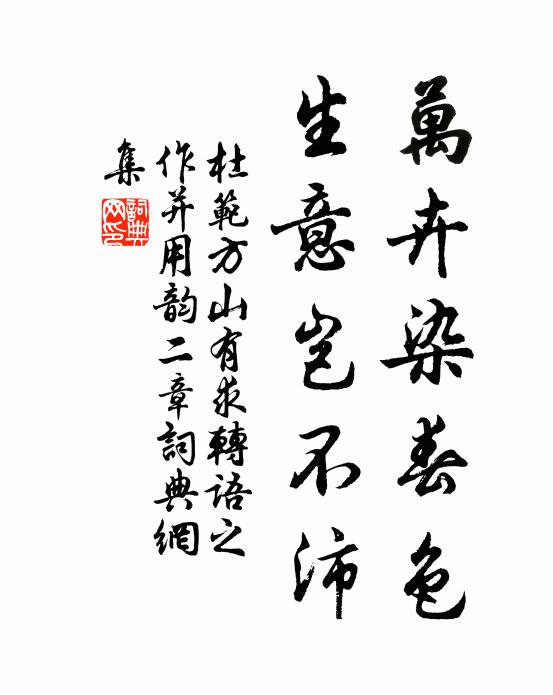 萬卉染春色
生意豈不沛
杜範方山有求轉語之
作并用韵二章詞典網
集
詞典
网印